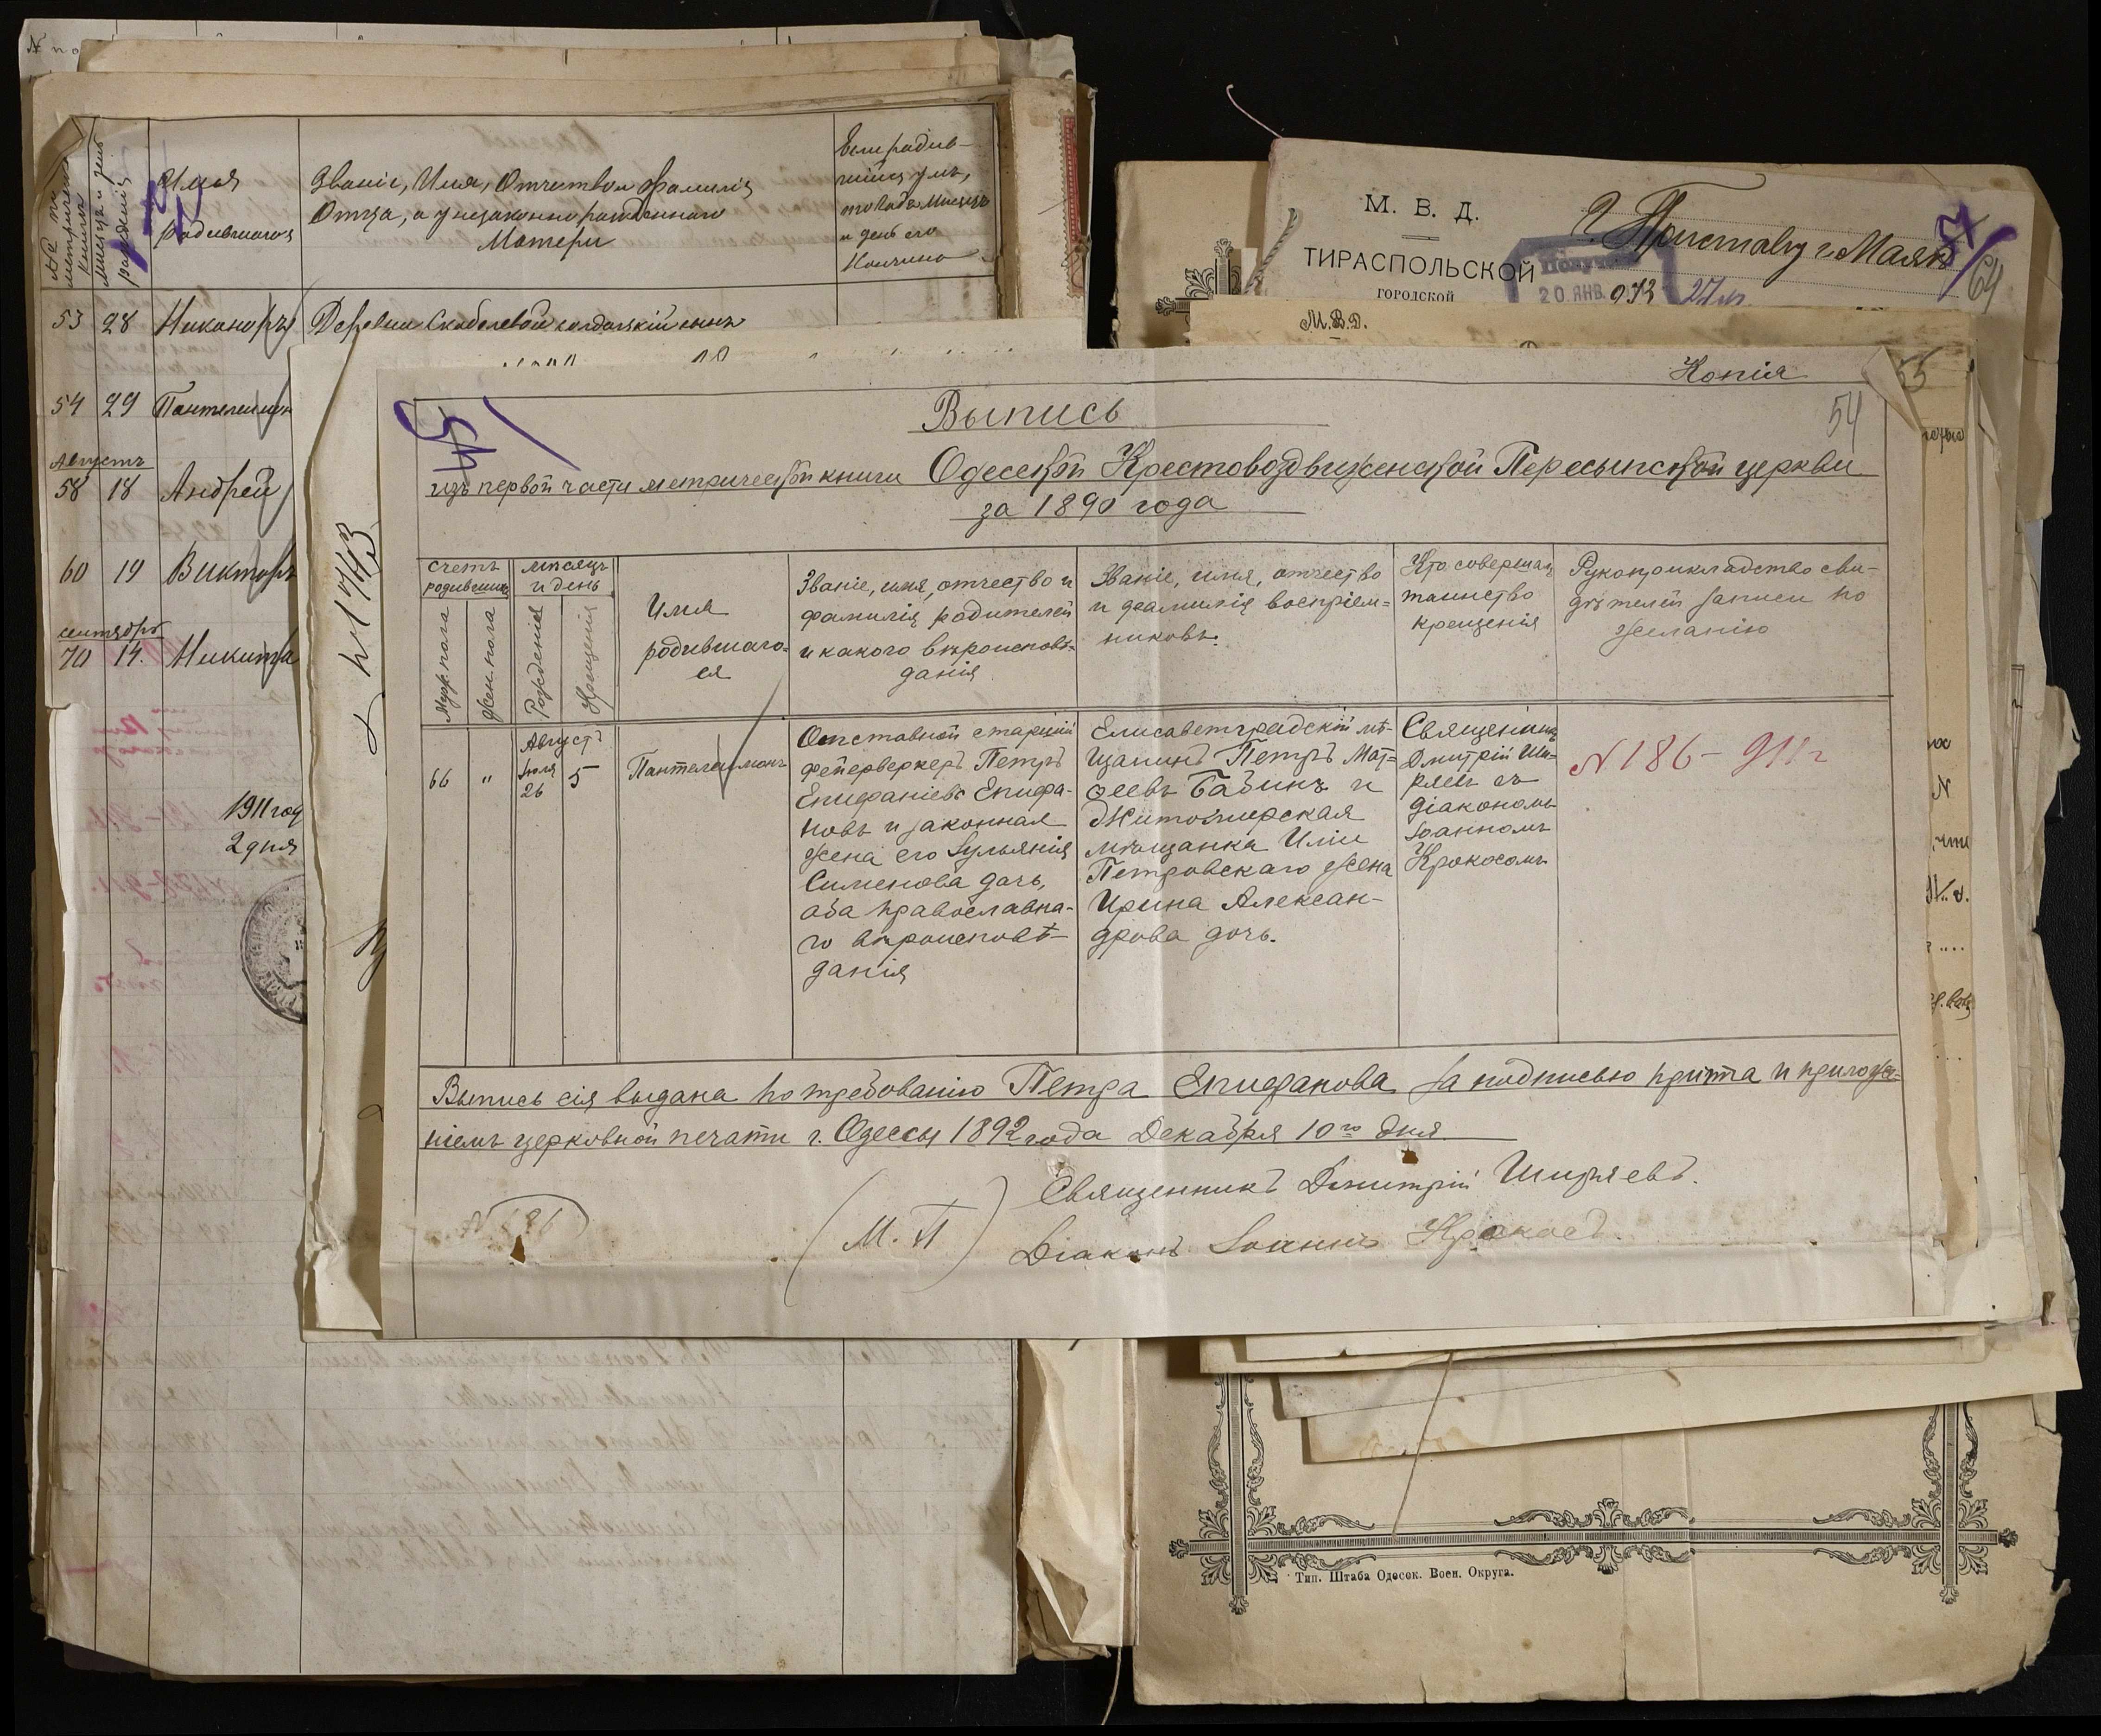 №
Имя
родившагося
Званіе, Имя, Отчество и фамилія
Отца, а у незаконно рожденнаго
Матери
Если родив-
шійся умъ,
и день его
53 28 Никаноръ Деревни
54 29 Пантелеимон
Августъ
58 18 Андрей
60 19 Викторъ
сентября
70 14. Никита
1911 год
2 дня
М. В. Д.
ТИРАСПОЛЬСКОЙ
ГОРОДСКОЙ
Г. Приставу г. Маякъ
20 ЯНВ. 913
64
М.В.Д.
55
Копія
54
54
Выпись
изъ первой части метрической книги Одесской Крестовоздвиженской Пересыпской церкви
за 1890 года
счетъ
родившихъ
мѣсяцъ
и день
Муж. пола
Жен. пола
Рожденія
Крещенія
Имя
родившаго-
ся
Званіе, имя, отчество и
фамилія родителей
и какого вѣроисповѣ-
данія
Званіе, имя, отчество
и фамилія воспріем-
никовъ.
Кто совершал
таинство
крещенія
Рукоприкладство сви-
дѣтелей записи по
желанію
66 " Августъ
Іюля
26 5 Пантелеимонъ
Отставной старшій
фейерверкеръ Петръ
Епифаніевъ Епифа-
новъ и законная
жена его Іульянія
Сименова дочь,
оба православна-
го вѣроисповѣ-
данія
Елисаветградскій мѣ-
щанинъ Петръ Мат-
феевъ Бабинъ и
Житомирская
мѣщанка Иліи
Петровскаго жена
Ирина Алексан-
дрова дочь.
Священникъ
Дмитрій Ши-
ряевъ съ
діакономъ
Іоанномъ
Крокосомъ
N 186 - 911 г
Выпись сія выдана по требованію Петра Епифанова за подписью причта и приложе-
ніемъ церковной печати г. Одессы 1892 года Декабря 10го дня
Священникъ Дмитрій Ширяевъ.
N 186
(М. П)
Діаконъ Іоаннъ Крокосъ.
Тип. Штаба Одесск. Воен. Округа.